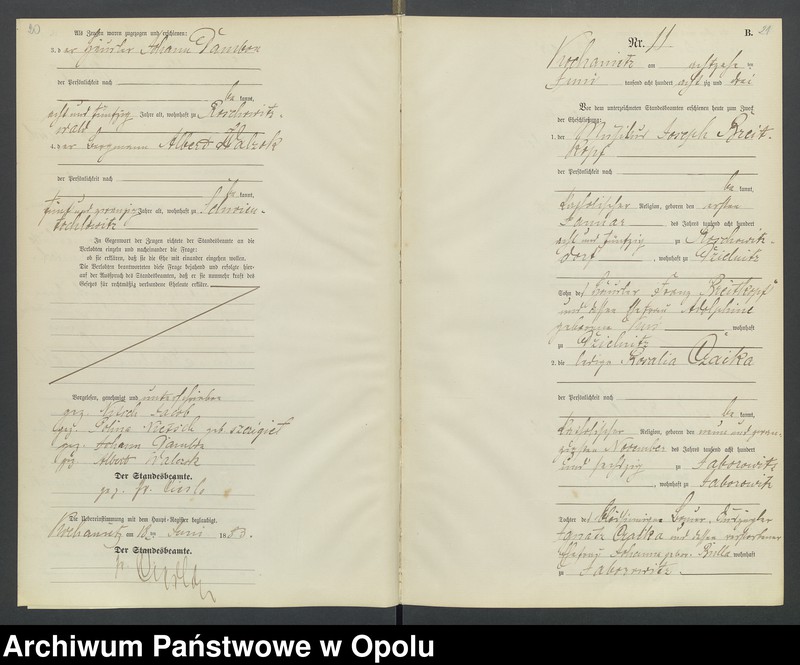 20
Als Zeugen waren zugezogen und erschienen:
3. der Häusler Johann Dambon
der Persönlichkeit nach
be kannt,
acht und fünfzig Jahre alt, wohnhaft zu Koschowitz-
wald
4. der Bergmann Albert Walzok
der Persönlichkeit nach
be kannt,
fünf und zwanzig Jahre alt, wohnhaft zu Schwien-
tochlowitz
In Gegenwart der Zeugen richtete der Standesbeamte an die
Verlobten einzeln und nacheinander die Frage:
ob sie erklären, daß sie die Ehe mit einander eingehen wollen.
Die Verlobten beantworteten diese Frage bejahend und erfolgte hier-
auf der Ausspruch des Standesbeamten, daß er sie nunmehr kraft des
Gesetzes für rechtmäßig verbundene Eheleute erkläre.
Vorgelesen, genehmigt und unterschrieben
gez. Jakob
gez. geb.
gez. Johann
gez. Albert Walzok
Der Standesbeamte.
gez.
Die Uebereinstimmung mit dem Haupt-Register beglaubigt.
Kochanietz am 18ten Juni 1883.
Der Standesbeamte.
B. 21
Nr. 11
Kochanietz am achtzehn ten
Juni tausend acht hundert acht zig und drei
Vor dem unterzeichneten Standesbeamten erschienen heute zum Zweck
der Eheschließung:
1. der Musikus Joseph Breit-
kopf
der Persönlichkeit nach
be kannt,
katholischer Religion, geboren den ersten
Januar des Jahres tausend acht hundert
acht und fünfzig zu
dorf, wohnhaft zu Dzielnitz
Sohn des Häusler Franz Breitkopf
und dessen Ehefrau Adolphine
geborene wohnhaft
zu Dzielnitz
2. die ledige Rosalia Czaika
der Persönlichkeit nach
be kannt,
katholischer Religion, geboren den neun und zwan-
zigsten November des Jahres tausend acht hundert
und sechzig zu Jaborowitz
, wohnhaft zu Jaborowitz
Tochter des Bauer
Czaika und dessen verstorbener
Ehefrau Johanna gebor. wohnhaft
zu Jaborowitz.
Archiwum Państwowe w Opolu